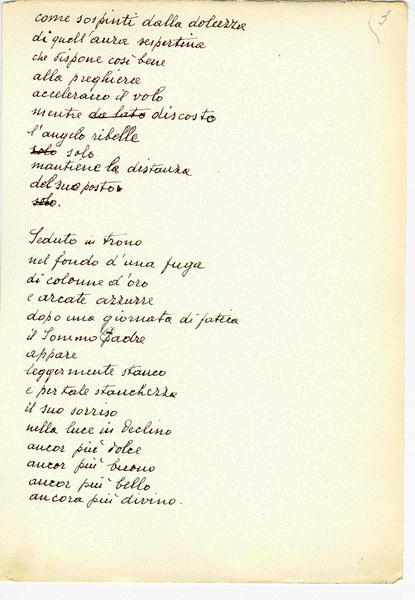 3
come sospinti dalla dolcezza
di quell'aura vespertina
che dispone così bene
alla preghiera
accelerano il volo
mentre da lato discosto
l'angelo ribelle
solo solo
mantiene la distanza
del suo posto
solo.
Seduto in trono
nel fondo d'una fuga
di colonne d'oro
e arcate azzurre
dopo una giornata di fatica
il Sommo Padre
appare
leggermente stanco
e per tale stanchezza
il suo sorriso
nella luce in declino
ancor più dolce
ancor più buono
ancor più bello
ancora più divino.